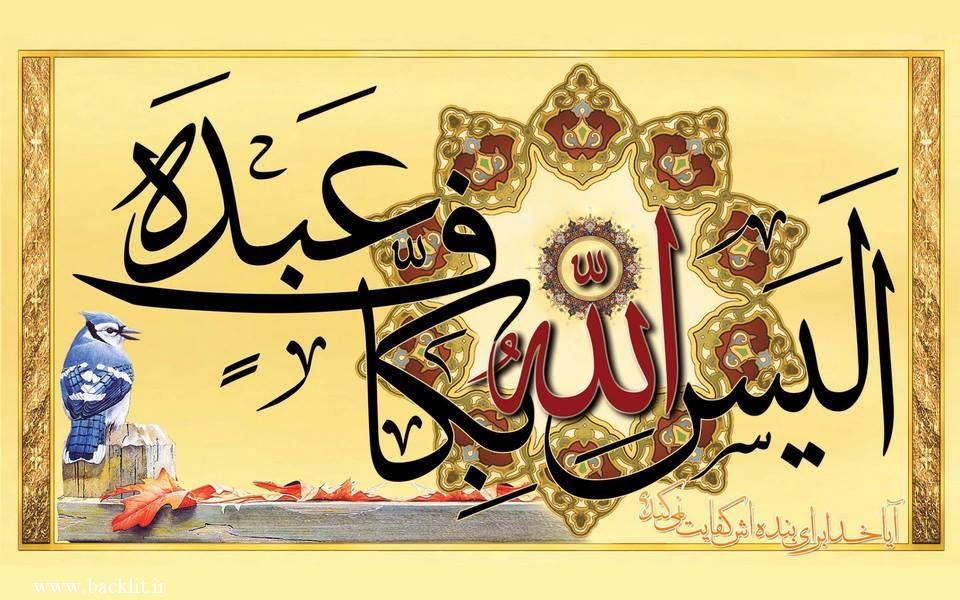 اَلَیسَ اللّٰه بِکافٍ عَبدَهُ
آیا خدا برای بنده اش کفایت نمی کند؟
www.backlit.ir